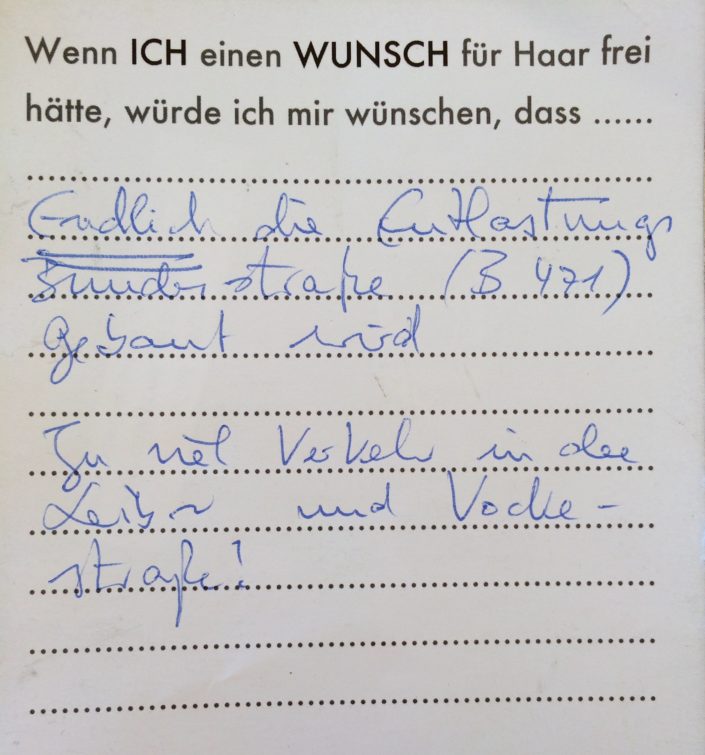 Wenn ICH einen WUNSCH für Haar frei
hätte, würde ich mir wünschen, dass ......
Endlich die Entlastungs
Bundesstraße (B 471)
gebaut wird
Zu viel Verkehr in der
Leib- und Vocke-
straße!